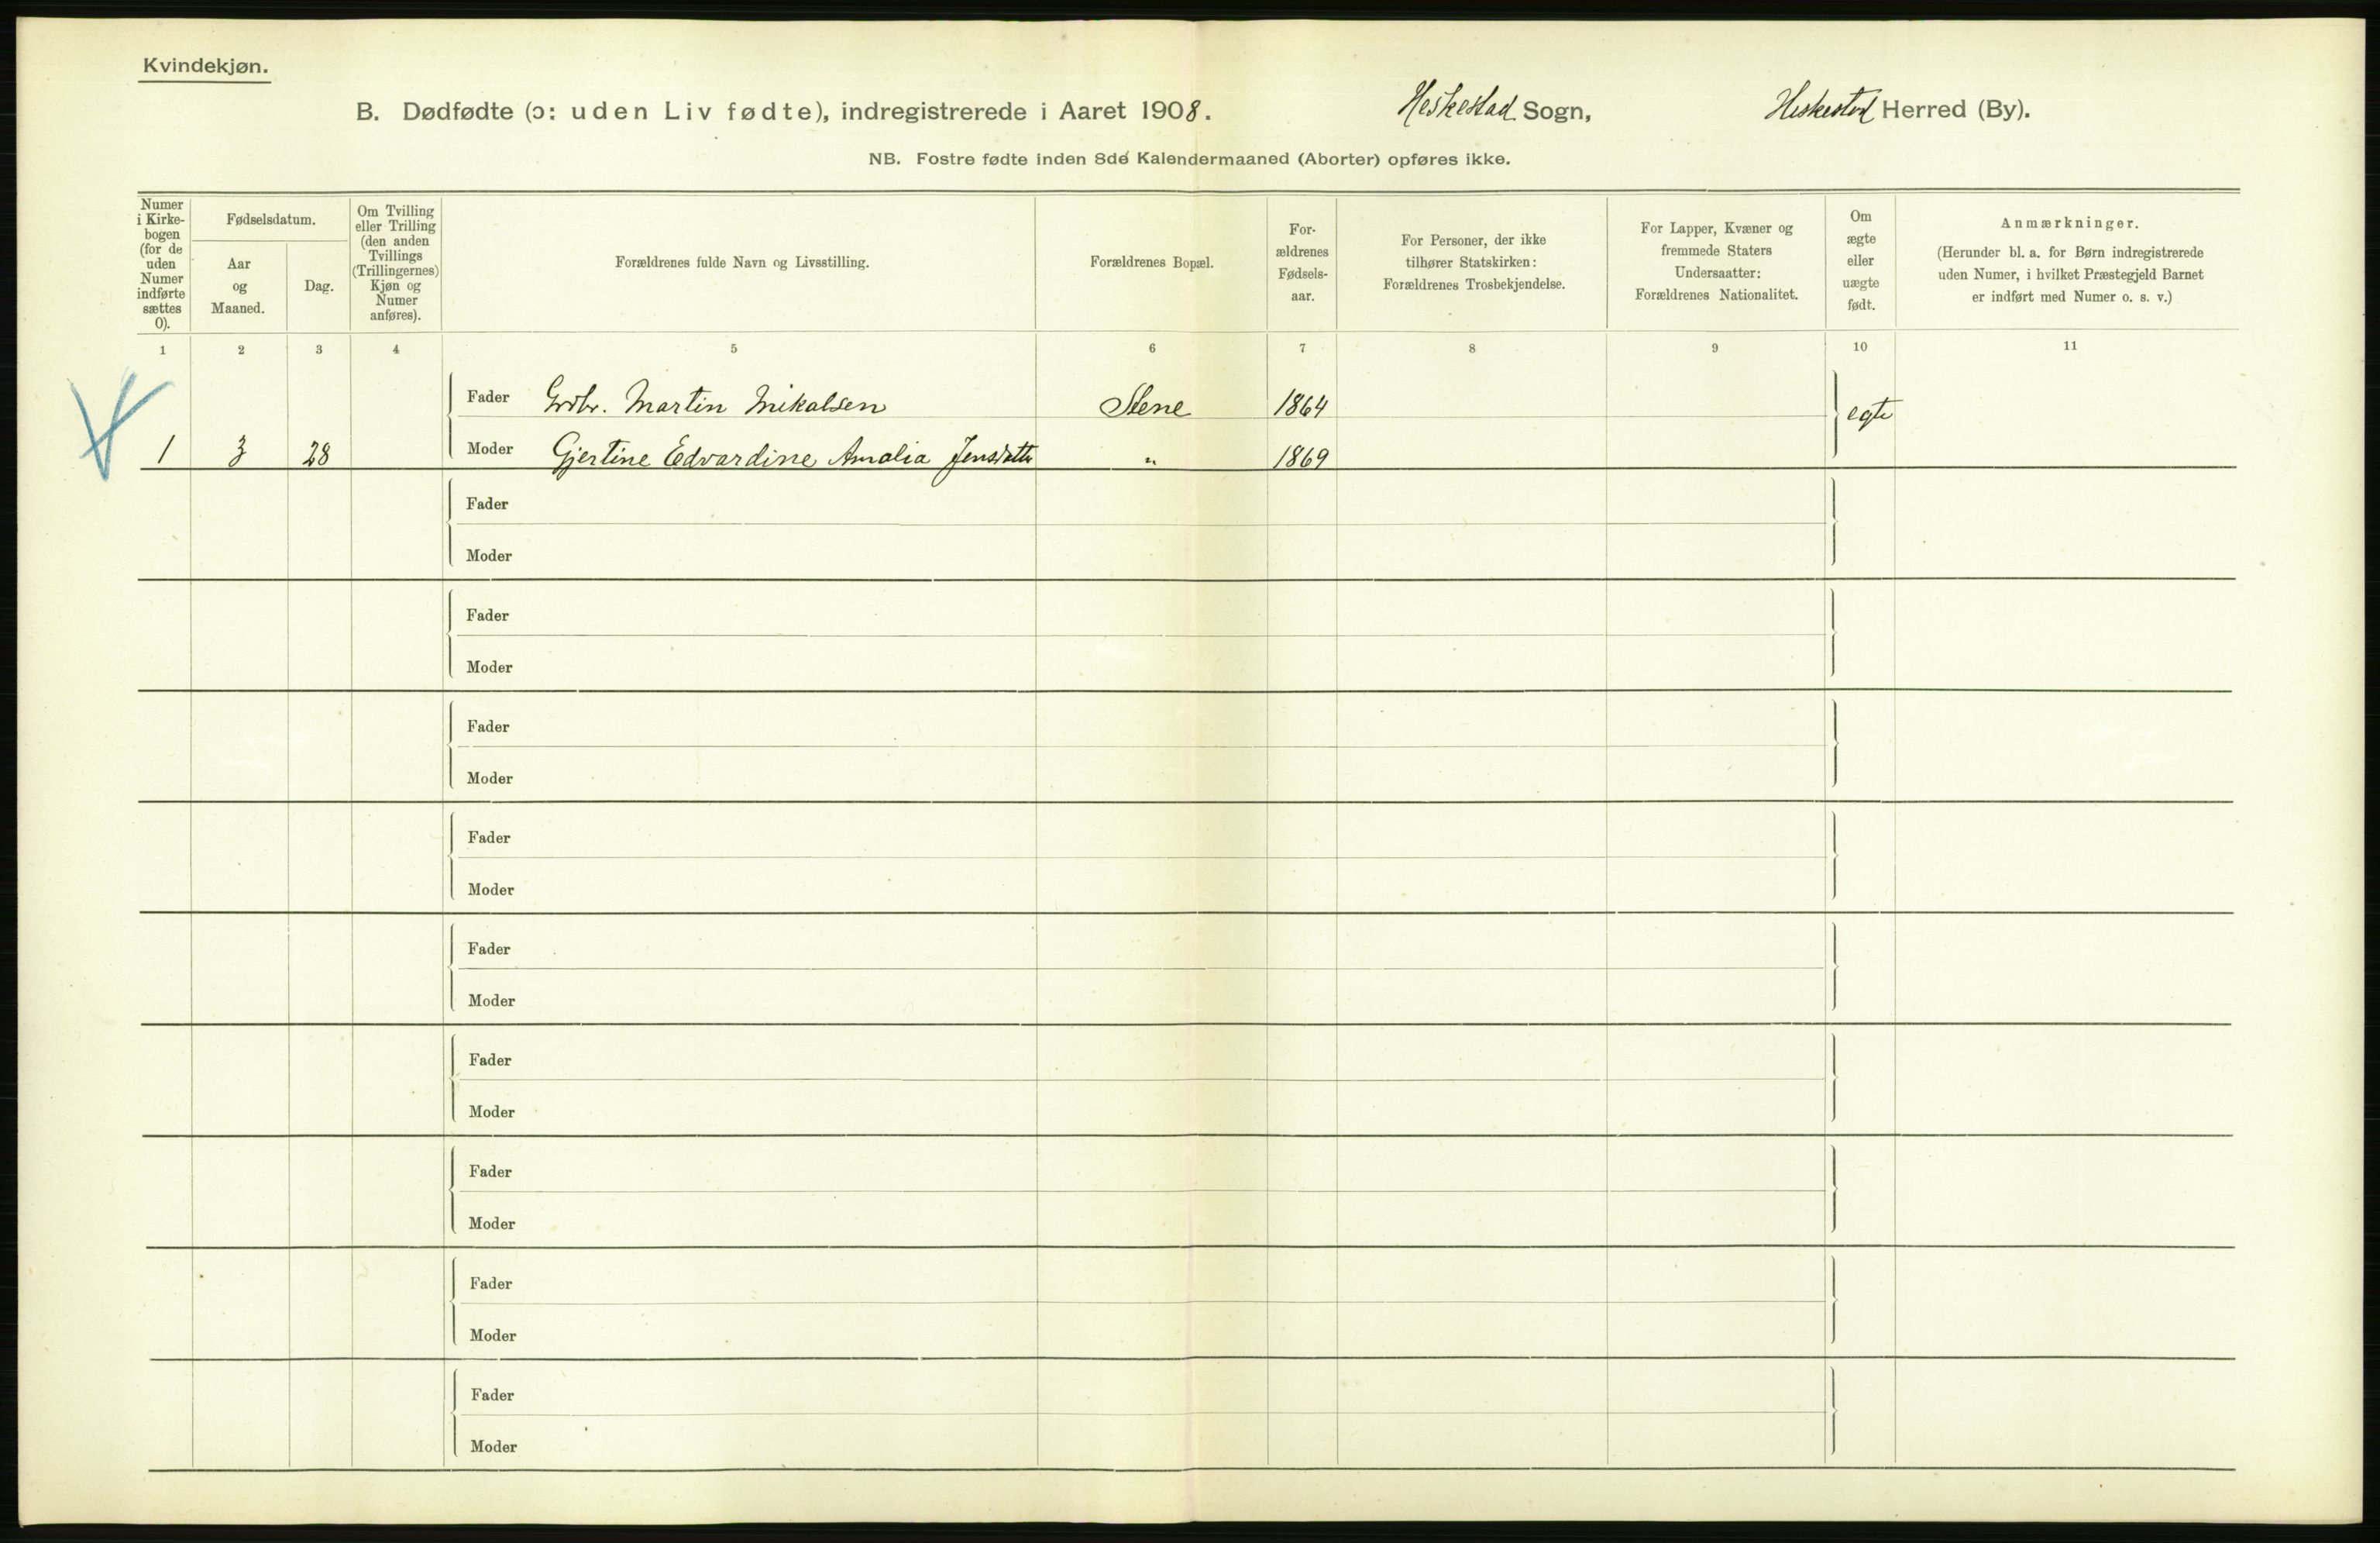 Kvindekjøn.
B. Dødfødte (ɔ: uden Liv fødte), indregistrerede i Aaret 1908. Heskestad Sogn, Heskestad Herred (By).
NB. Fostre fødte inden 8de Kalendermaaned (Aborter) opføres ikke.
Numer
i Kirke-
bogen
(for de
uden
Numer
indførte
sættes
0).
Fødselsdatum.
Aar
og
Maaned.
Dag.
Om Tvilling
eller Trilling
(den anden
Tvillings
(Trillingernes)
Kjøn og
Numer
anføres).
Forældrenes fulde Navn og Livsstilling.
Forældrenes Bopæl.
For-
ældrenes
Fødsels-
aar.
For Personer, der ikke
tilhører Statskirken:
Forældrenes Trosbekjendelse.
For Lapper, Kvæner og
fremmede Staters
Undersaatter:
Forældrenes Nationalitet.
Om
ægte
eller
uægte
født.
Anmærkninger.
(Herunder bl. a. for Børn indregistrerede
uden Numer, i hvilket Præstegjeld Barnet
er indført med Numer o. s. v.)
1 2 3 4 5 6 7 8 9 10 11
Fader Grdbr. Martin Mikalsen Stene 1864 egte
1 3 28 Moder Gjertine Edvardine Amalia Jensdatter " 1869
Fader
Moder
Fader
Moder
Fader
Moder
Fader
Moder
Fader
Moder
Fader
Moder
Fader
Moder
Fader
Moder
Fader
Moder